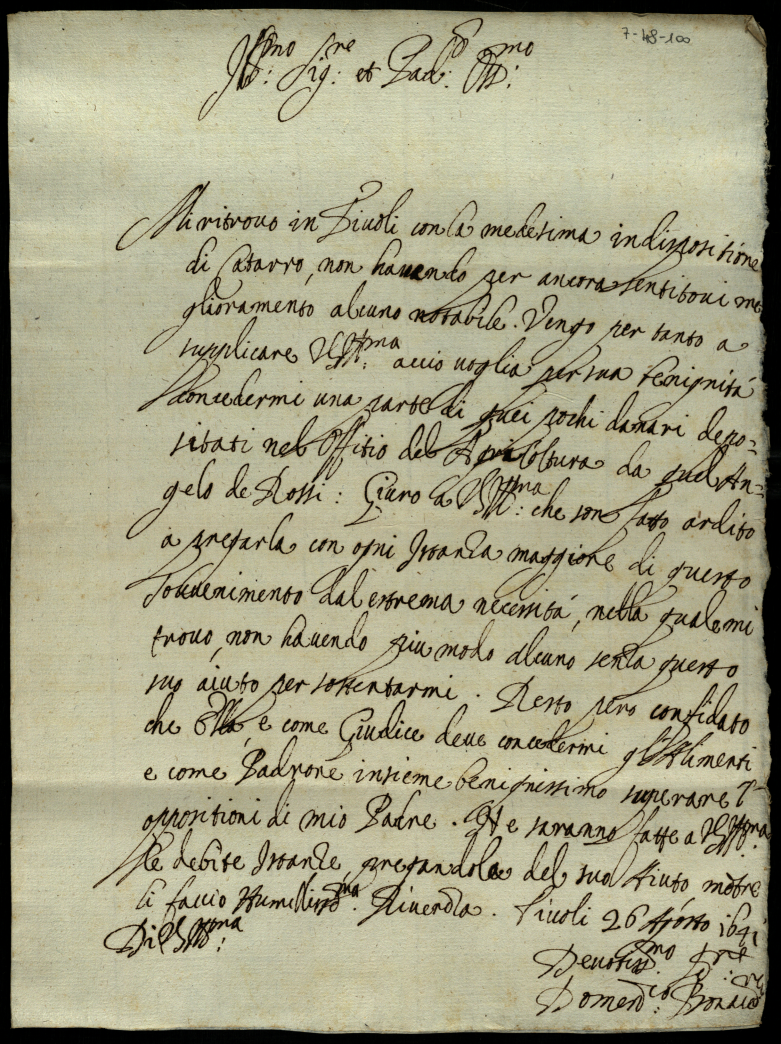 7-48-100
Ill:mo Sig:re et Pad:
Mi ritrovo in Tivoli con la medesima indispositione
di Catarro, non havendo per ancora sentitovi me
glioramento alcuno notabile. Vengo per tanto a
supplicare VS Ill:ma accio voglia per sua benignità
concedermi una parte di quei pochi danari depo=
sitati nel Offitio del Agricoltura da quel An=
gelo de Rossi: Giuro a VS Ill:ma che son fatto ardito
a pregarla con ogni Istanza maggiore di questo
sovvenimento dal estrema necessità, nella quale mi
trovo, non havendo piu modo alcuno senza questo
suo aiuto per sostentarmi. Resto pero confidato
che Ella, e come Giudice deve concedermi gl'Alimenti
e come Padrone insieme benignissimo superare l'
oppositioni di mio Padre. Gli ne saranno fatte a VS Ill:ma
le debite Istanze, pregandola del suo Aiuto mentre
li faccio Humilissima Riverenza. Tivoli 26 Agosto 1641
Di VS Ill:ma
Devotiss:mo
Domen:co